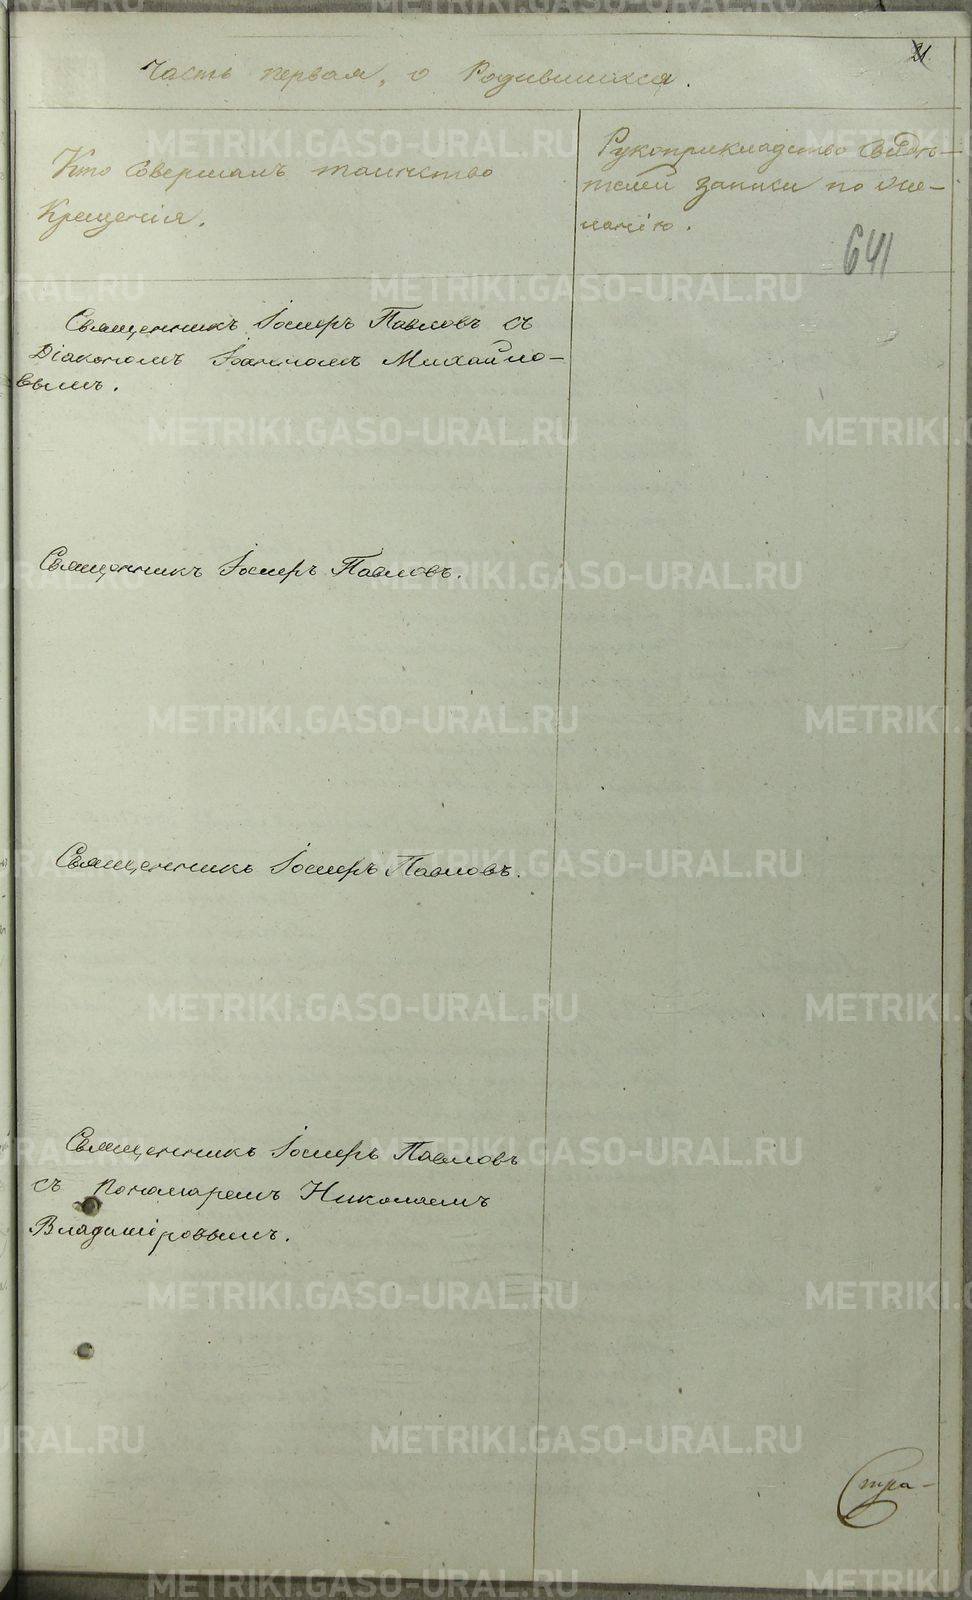 21.
Часть первая, о Родившихся.
Кто совершалъ таинство
Крещенія.
Рукоприкладство свидѣ-
телей записи по же-
ланію.
641
Священникъ Іосифъ Павловъ съ
Діакономъ Іоанномъ Михайло-
вымъ.
Священникъ Іосифъ Павловъ.
Священникъ Іосифъ Павловъ.
Священникъ Іосифъ Павловъ
съ пономаремъ Николаемъ
Владиміровымъ.
Стра-
METRIKI.GASO-URAL.RU